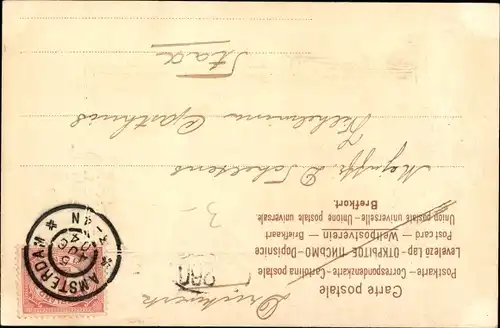 Carte postale
Postkarte – Correspondenzkarte – Cartolina postale
Levelező Lap – ОТКРЫТОЕ ПИСЬМО – Dopisnice
Postcard — Weltpostverein — Briefkaart
Union postale universelle – Union postale universale.
Brefkort.
Drukwerk
3
Mejuffr. D. Scheltens
Wilhelmina Gasthuis
Stad
AMSTERDAM